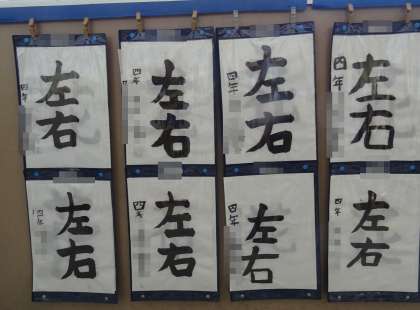 左右
四年
左右
四年
左右
四年
左右
四年
左右
四年
左右
四年
左右
四年
左右
四年